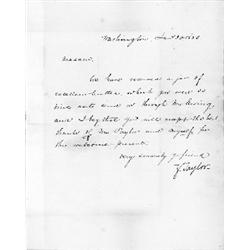 Washington Jan
Madam,
We have received a jar of
excellent butter, which you were so
kind as to send us through Mr.
and I beg that you will accept the best
thanks of Mrs Taylor and myself for
this welcome present.
Very sincerely yr friend
Z. Taylor